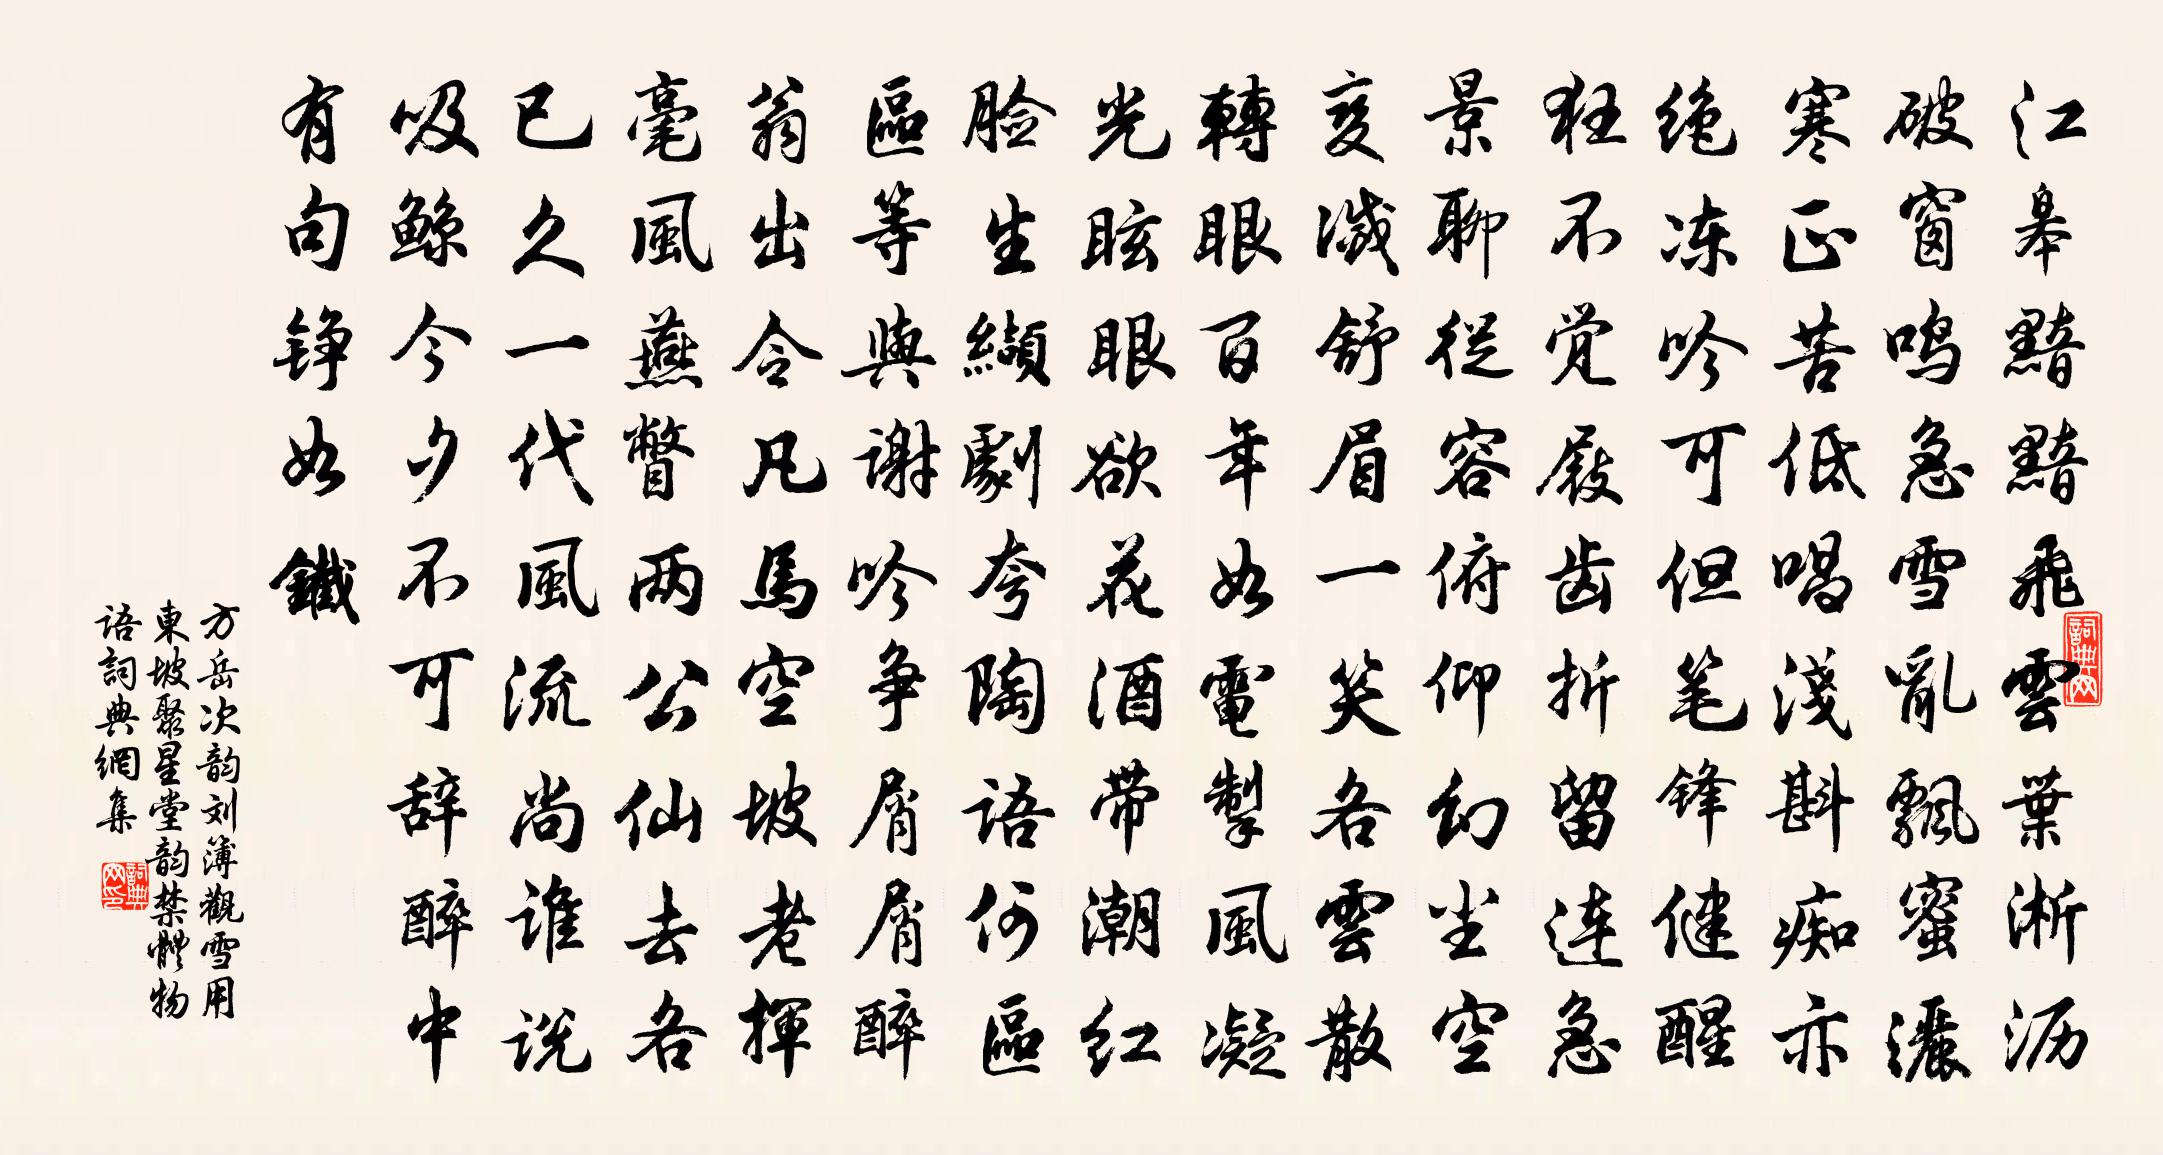 江皋黯黯飛雲葉淅沥
破窗鸣急雪亂飄蜜灑
寒正苦低唱淺斟痴亦
绝冻吟可但笔锋健醒
狂不觉屐齿折留连急
景聊從容俯仰幻尘空
变滅舒眉一笑各雲散
轉眼百年如電掣風凝
光眩眼欲花酒带潮红
脸生纈劇夸陶語何區
區等與謝吟争屑屑醉
翁出令凡馬空坡老揮
毫風燕瞥两公仙去各
已久一代風流尚谁说
吸鲸今夕不可辞醉中
有句铮如鐵
方岳次韵刘簿觀雪用
東坡聚星堂韵禁體物
语詞典網集
詞典网
詞典网印